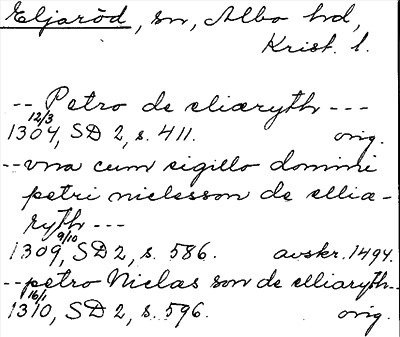 Eljaröd, sn, Albo hd,
Krist. l.
-- Petro de eliæryth ---
12/3
1304, SD 2, s. 411. orig.
-- vna cum sigillo domini
petri niclesson de ellia-
ryth ---
9/10
1309, SD 2, s. 586. avskr. 1494.
-- petro Niclas son de elliaryth --
16/1
1310, SD 2, s. 596. orig.